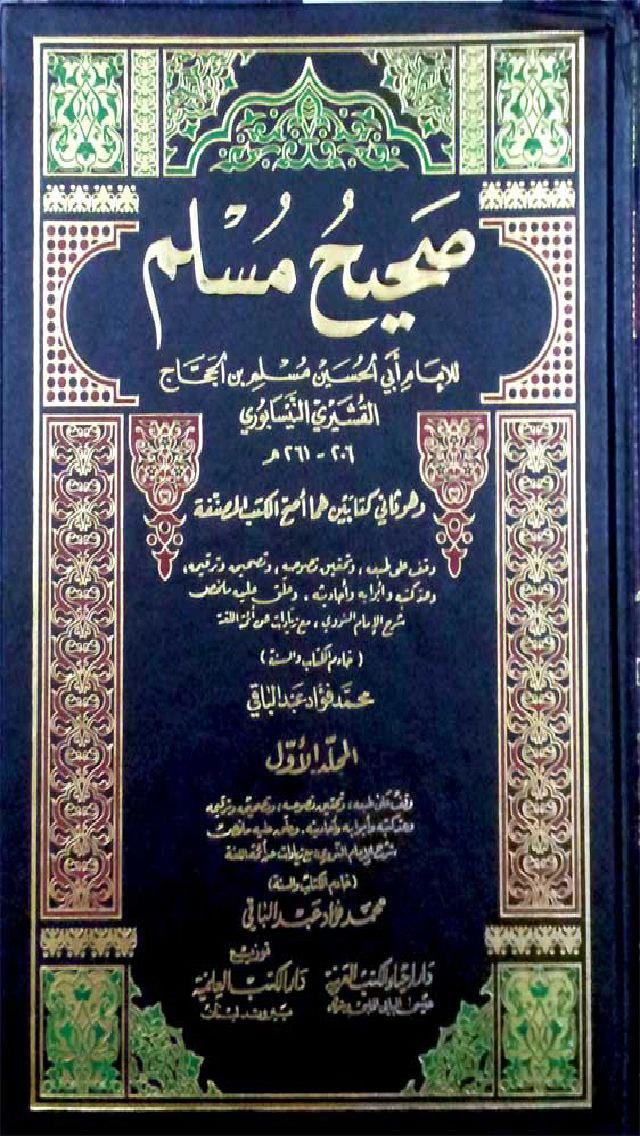 صَحِيحُ مُسْلِم
للإمام أبي الحسين مسلم بن الحجاج
القشيري النيسابوري
٢٠٦ - ٢٦١ هـ
وهو ثاني كتابين هما أصح الكتب المصنفة
وقف على طبعه، وتحقيق نصوصه، وتصحيحه وترقيمه،
وعد كتبه وأبوابه وأحاديثه، وعلق عليه ملخص
شرح الإمام النووي، مع زيادات عن أئمة اللغة
(خادم الكتاب والسنة)
محمد فؤاد عبد الباقي
المجلد الأول
وقف على طبعه، وتحقيق نصوصه، وتصحيحه وترقيمه
وعد كتبه وأبوابه وأحاديثه، وعلق عليه ملخص
شرح الإمام النووي مع زيادات عن أئمة اللغة
(خادم الكتاب والسنة)
محمد فؤاد عبد الباقي
توزيع
دار إحياء الكتب العربية دار الكتب العلمية
عيسى البابي الحلبي وشركاه بيروت لبنان